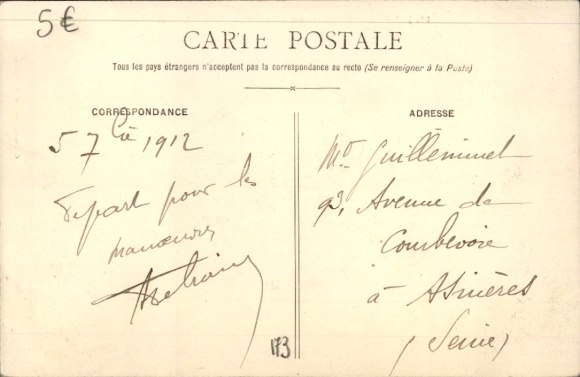 5€
CARTE POSTALE
Tous les pays étrangers n'acceptent pas la correspondance au recto (Se renseigner à la Poste)
CORRESPONDANCE
5 7bre 1912
Départ pour les
manœuvres
ADRESSE
Mr Guilleminet
92, Avenue de
Courbevoie
à Asnières
(Seine)
173